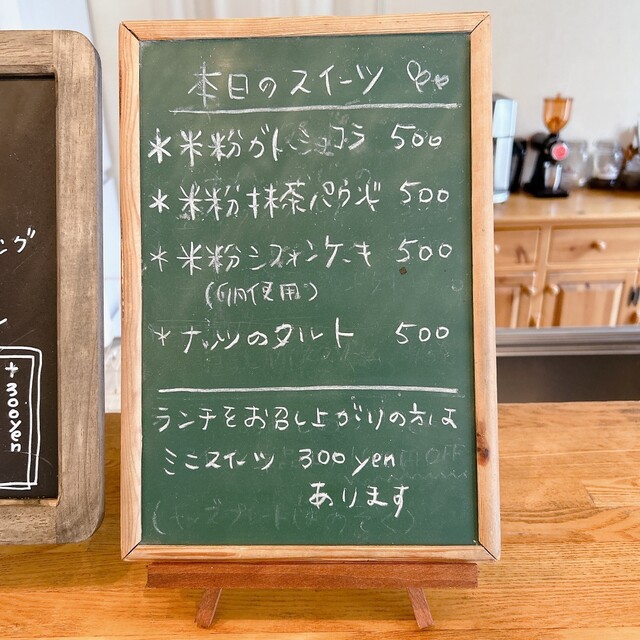 本日のスイーツ
*米粉ガトーショコラ 500
*米粉抹茶パウンド 500
*米粉シフォンケーキ 500
(卵使用)
*ナッツのタルト 500
ランチをお召し上がりの方は
ミニスイーツ 300yen
あります
ング
+300yen